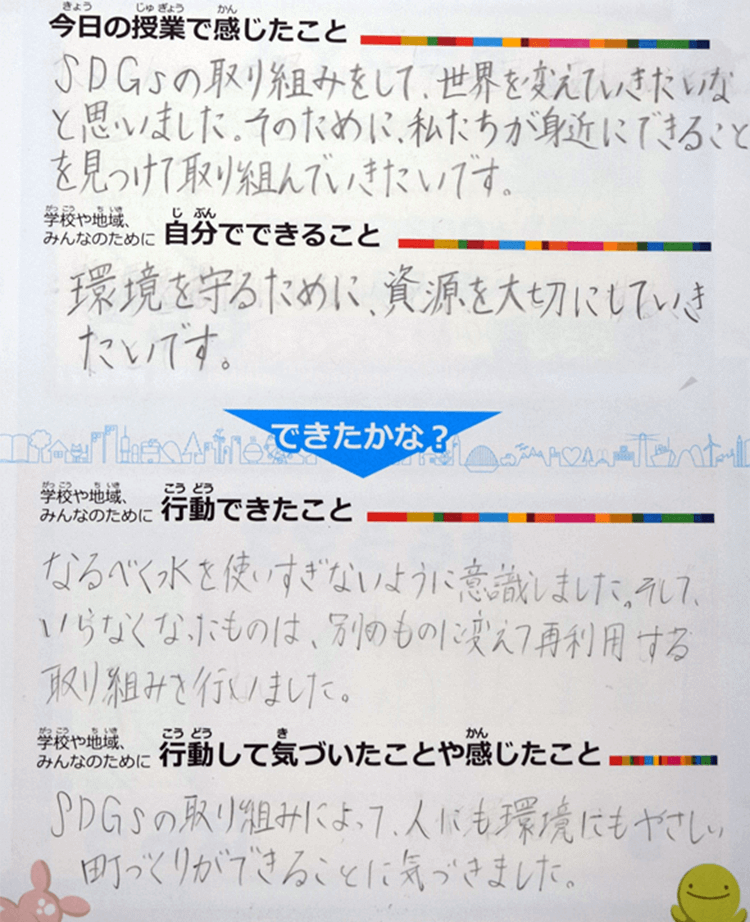 今日の授業で感じたこと
SDGsの取り組みをして、世界を変えていきたいな
と思いました。そのために、私たちが身近にできること
を見つけて取り組んでいきたいです。
学校や地域、
みんなのために 自分でできること
環境を守るために、資源を大切にもしていき
たいです。
できたかな？
学校や地域、
みんなのために 行動できたこと
なるべく水を使いすぎないように意識しました。そして、
いらなくなったものは、別のものに変えて再利用する
取り組みを行いました。
学校や地域、
みんなのために 行動して気づいたことや感じたこと
SDGsの取り組みによって、人にも環境にもやさしい
町づくりができることに気づきました。